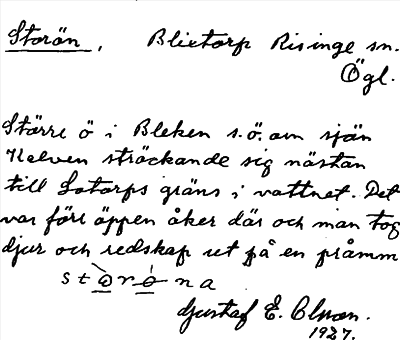 Storön, Blietorp Risinge sn.
Ögl.
Större ö i Bleken s.ö. om sjön
Kelven sträckande sig nästan
till Sotorps gräns i vattnet. Det
var förr öppen åker där och man tog
djur och redskap ut på en pråmm
störöna
Gustaf E. Olsson.
1927.